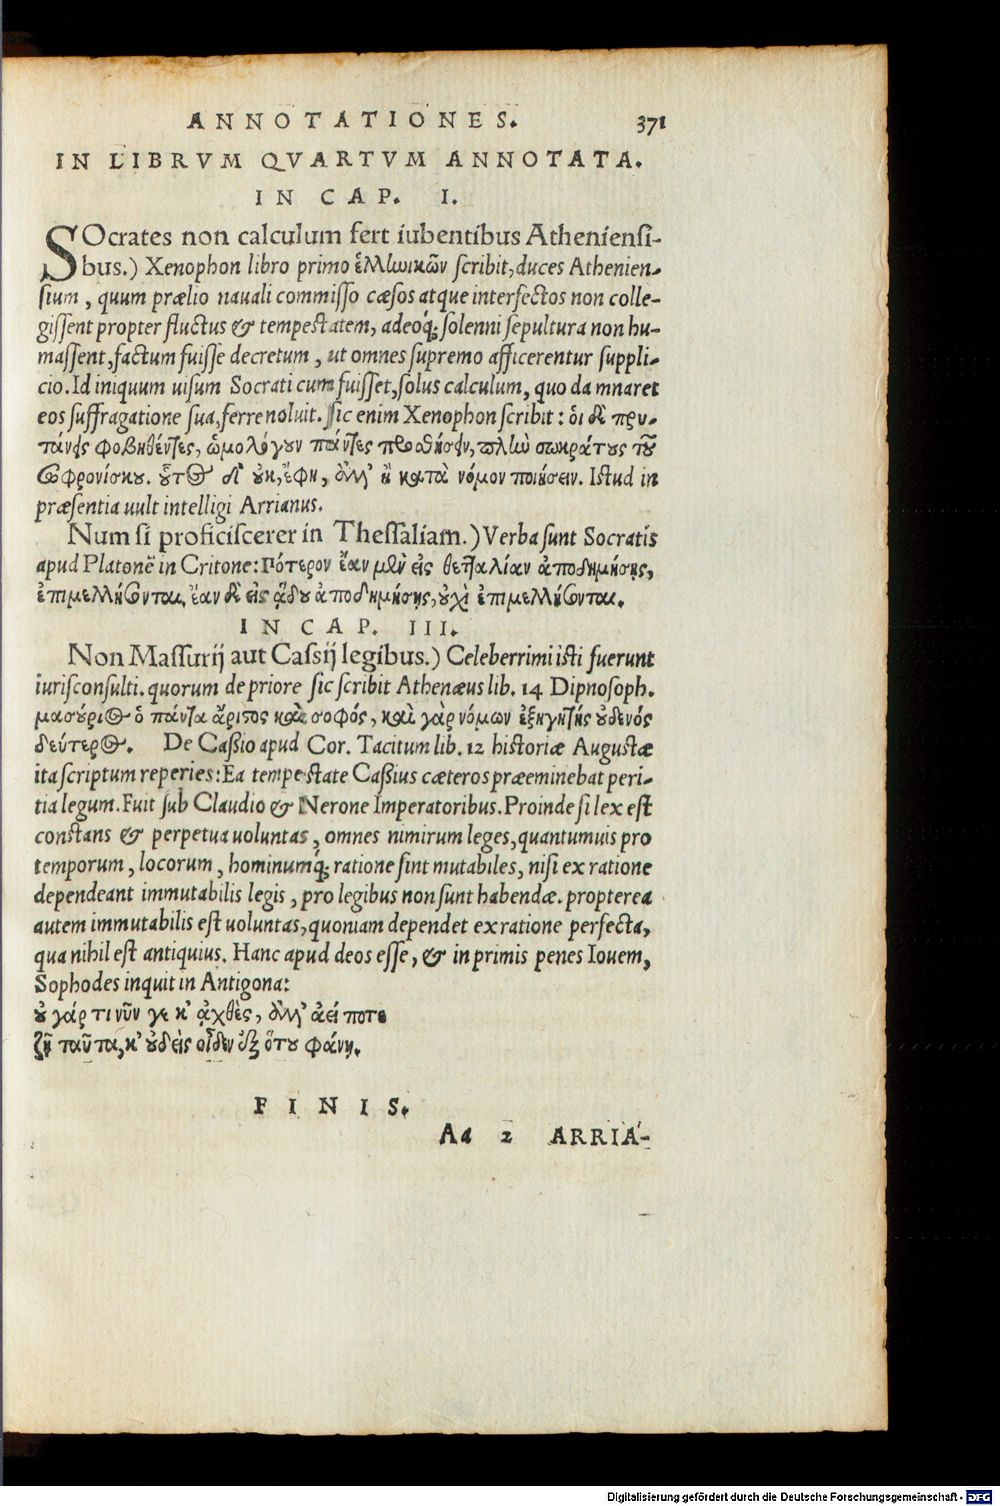 ANNOTATIONES. 371
IN LIBRVM QVARTVM ANNOTATA.
IN CAP. I.
SOcrates non calculum fert iubentibus Atheniensi-
bus.) Xenophon libro primo ἑλλωικῶν scribit, duces Athenien-
sium, quum prælio nauali commisso cæsos atque interfectos non colle-
gissent propter fluctus & tempestatem, adeoq́; solenni sepultura non hu-
massent, factum fuisse decretum, ut omnes supremo afficerentur suppli-
cio. Id iniquum uisum Socrati cum fuisset, solus calculum, quo damnaret
eos suffragatione sua, ferre noluit. Sic enim Xenophon scribit: ὁι δὲ πρυ-
τάνεις φοβηθέντες, ὡμολόγουν πάντες προθήσειν, πλὼ σωκράτους τοῦ
σωφρονίσκου. οὗτος δ' οὐκ, ἔφη, ἀλλ' ἢ κατὰ νόμον ποιήσειν. Istud in
præsentia uult intelligi Arrianus.
Num si proficiscerer in Thessaliam.) Verba sunt Socratis
apud Platonē in Critone: Πότερον ἔαν μὲν εἰς θετταλίαν ἀποδημήσῃς,
ἐπιμελήσονται, ἔαν δὲ εἰς ᾅδου ἀποδημήσῃς, οὐχὶ ἐπιμελήσονται.
IN CAP. III.
Non Massurij aut Cassij legibus.) Celeberrimi isti fuerunt
iurisconsulti. quorum de priore sic scribit Athenæus lib. 14 Dipnosoph.
μασούριος ὁ πάντα ἄριστος καὶ σοφός, καὶ γὰρ νόμων ἐξηγητής οὐδενός
δεύτερος. De Cassio apud Cor. Tacitum lib. 12 historiæ Augustæ
ita scriptum reperies: Ea tempestate Cassius cæteros præeminebat peri-
tia legum. Fuit sub Claudio & Nerone Imperatoribus. Proinde si lex est
constans & perpetua uoluntas, omnes nimirum leges, quantumuis pro
temporum, locorum, hominumq́; ratione sint mutabiles, nisi ex ratione
dependeant immutabilis legis, pro legibus non sunt habendæ. propterea
autem immutabilis est uoluntas, quoniam dependet ex ratione perfecta,
qua nihil est antiquius. Hanc apud deos esse, & in primis penes Iouem,
Sophocles inquit in Antigona:
οὐ γάρ τι νῦν γε κ' ἀχθὲς, ἀλλ' ἀεί ποτε
ζῇ ταῦτα, κ' οὐδεὶς οἶδεν ἐξ ὅτου φάνη.
FINIS.
Aa 2 ARRIA-
Digitalisierung gefördert durch die Deutsche Forschungsgemeinschaft - DFG